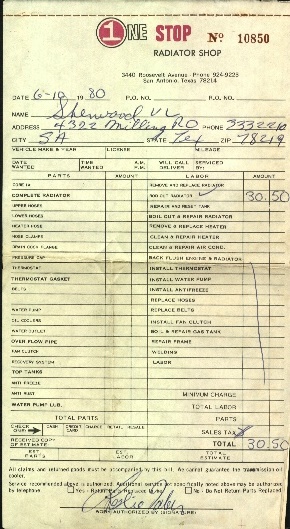 1 ONE STOP Nº 10850
RADIATOR SHOP
3440 Roosevelt Avenue - Phone 924-9223
San Antonio, Texas 78214
DATE 6-10 1980 P.O. NO. P.O. NO.
NAME Sherwood
ADDRESS 4322 Milling RD PHONE
CITY SA STATE Tex ZIP 78219
VEHICLE MAKE & YEAR LICENSE MILEAGE
DATE WANTED TIME WANTED A.M. P.M. WILL CALL DELIVER SERVICED BY:
PARTS AMOUNT LABOR AMOUNT
CORE IN REMOVE AND REPLACE RADIATOR
COMPLETE RADIATOR ROD OUT RADIATOR 30.50
UPPER HOSES REPAIR AND RESET TANK
LOWER HOSES BOIL OUT & REPAIR RADIATOR
HEATER HOSE REMOVE & REPLACE HEATER
HOSE CLAMPS CLEAN & REPAIR HEATER
DRAIN COCK FLANGE CLEAN & REPAIR AIR COND.
PRESSURE CAP BACK FLUSH ENGINE & RADIATOR
THERMOSTAT INSTALL THERMOSTAT
THERMOSTAT GASKET INSTALL WATER PUMP
BELTS INSTALL ANTIFREEZE
REPLACE HOSES
WATER PUMP REPLACE BELTS
OIL COOLERS INSTALL FAN CLUTCH
WATER OUTLET BOIL & REPAIR GAS TANK
OVER FLOW PIPE REPAIR FRAME
FAN CLUTCH WELDING
RECOVERY SYSTEM LABOR
TOP TANKS
ANTI FREEZE
ANTI RUST MINIMUM CHARGE
WATER PUMP LUB. TOTAL LABOR
TOTAL PARTS PARTS
CHECK ONE CASH CREDIT CARD CHARGE RETAIL RESALE SALES TAX
RECEIVED COPY OF ESTIMATE TOTAL 30.50
EST PARTS EST LABOR TOTAL ESTIMATE
All claims and returned goods must be accompanied by this bill. We cannot guarantee the transmission oil cooler.
Service recommended above is authorized. Additional service not specifically noted above may be authorized by telephone. Yes - Return Replaced Parts No - Do Not Return Parts Replaced
WORK AUTHORIZED BY (SIGNATURE)